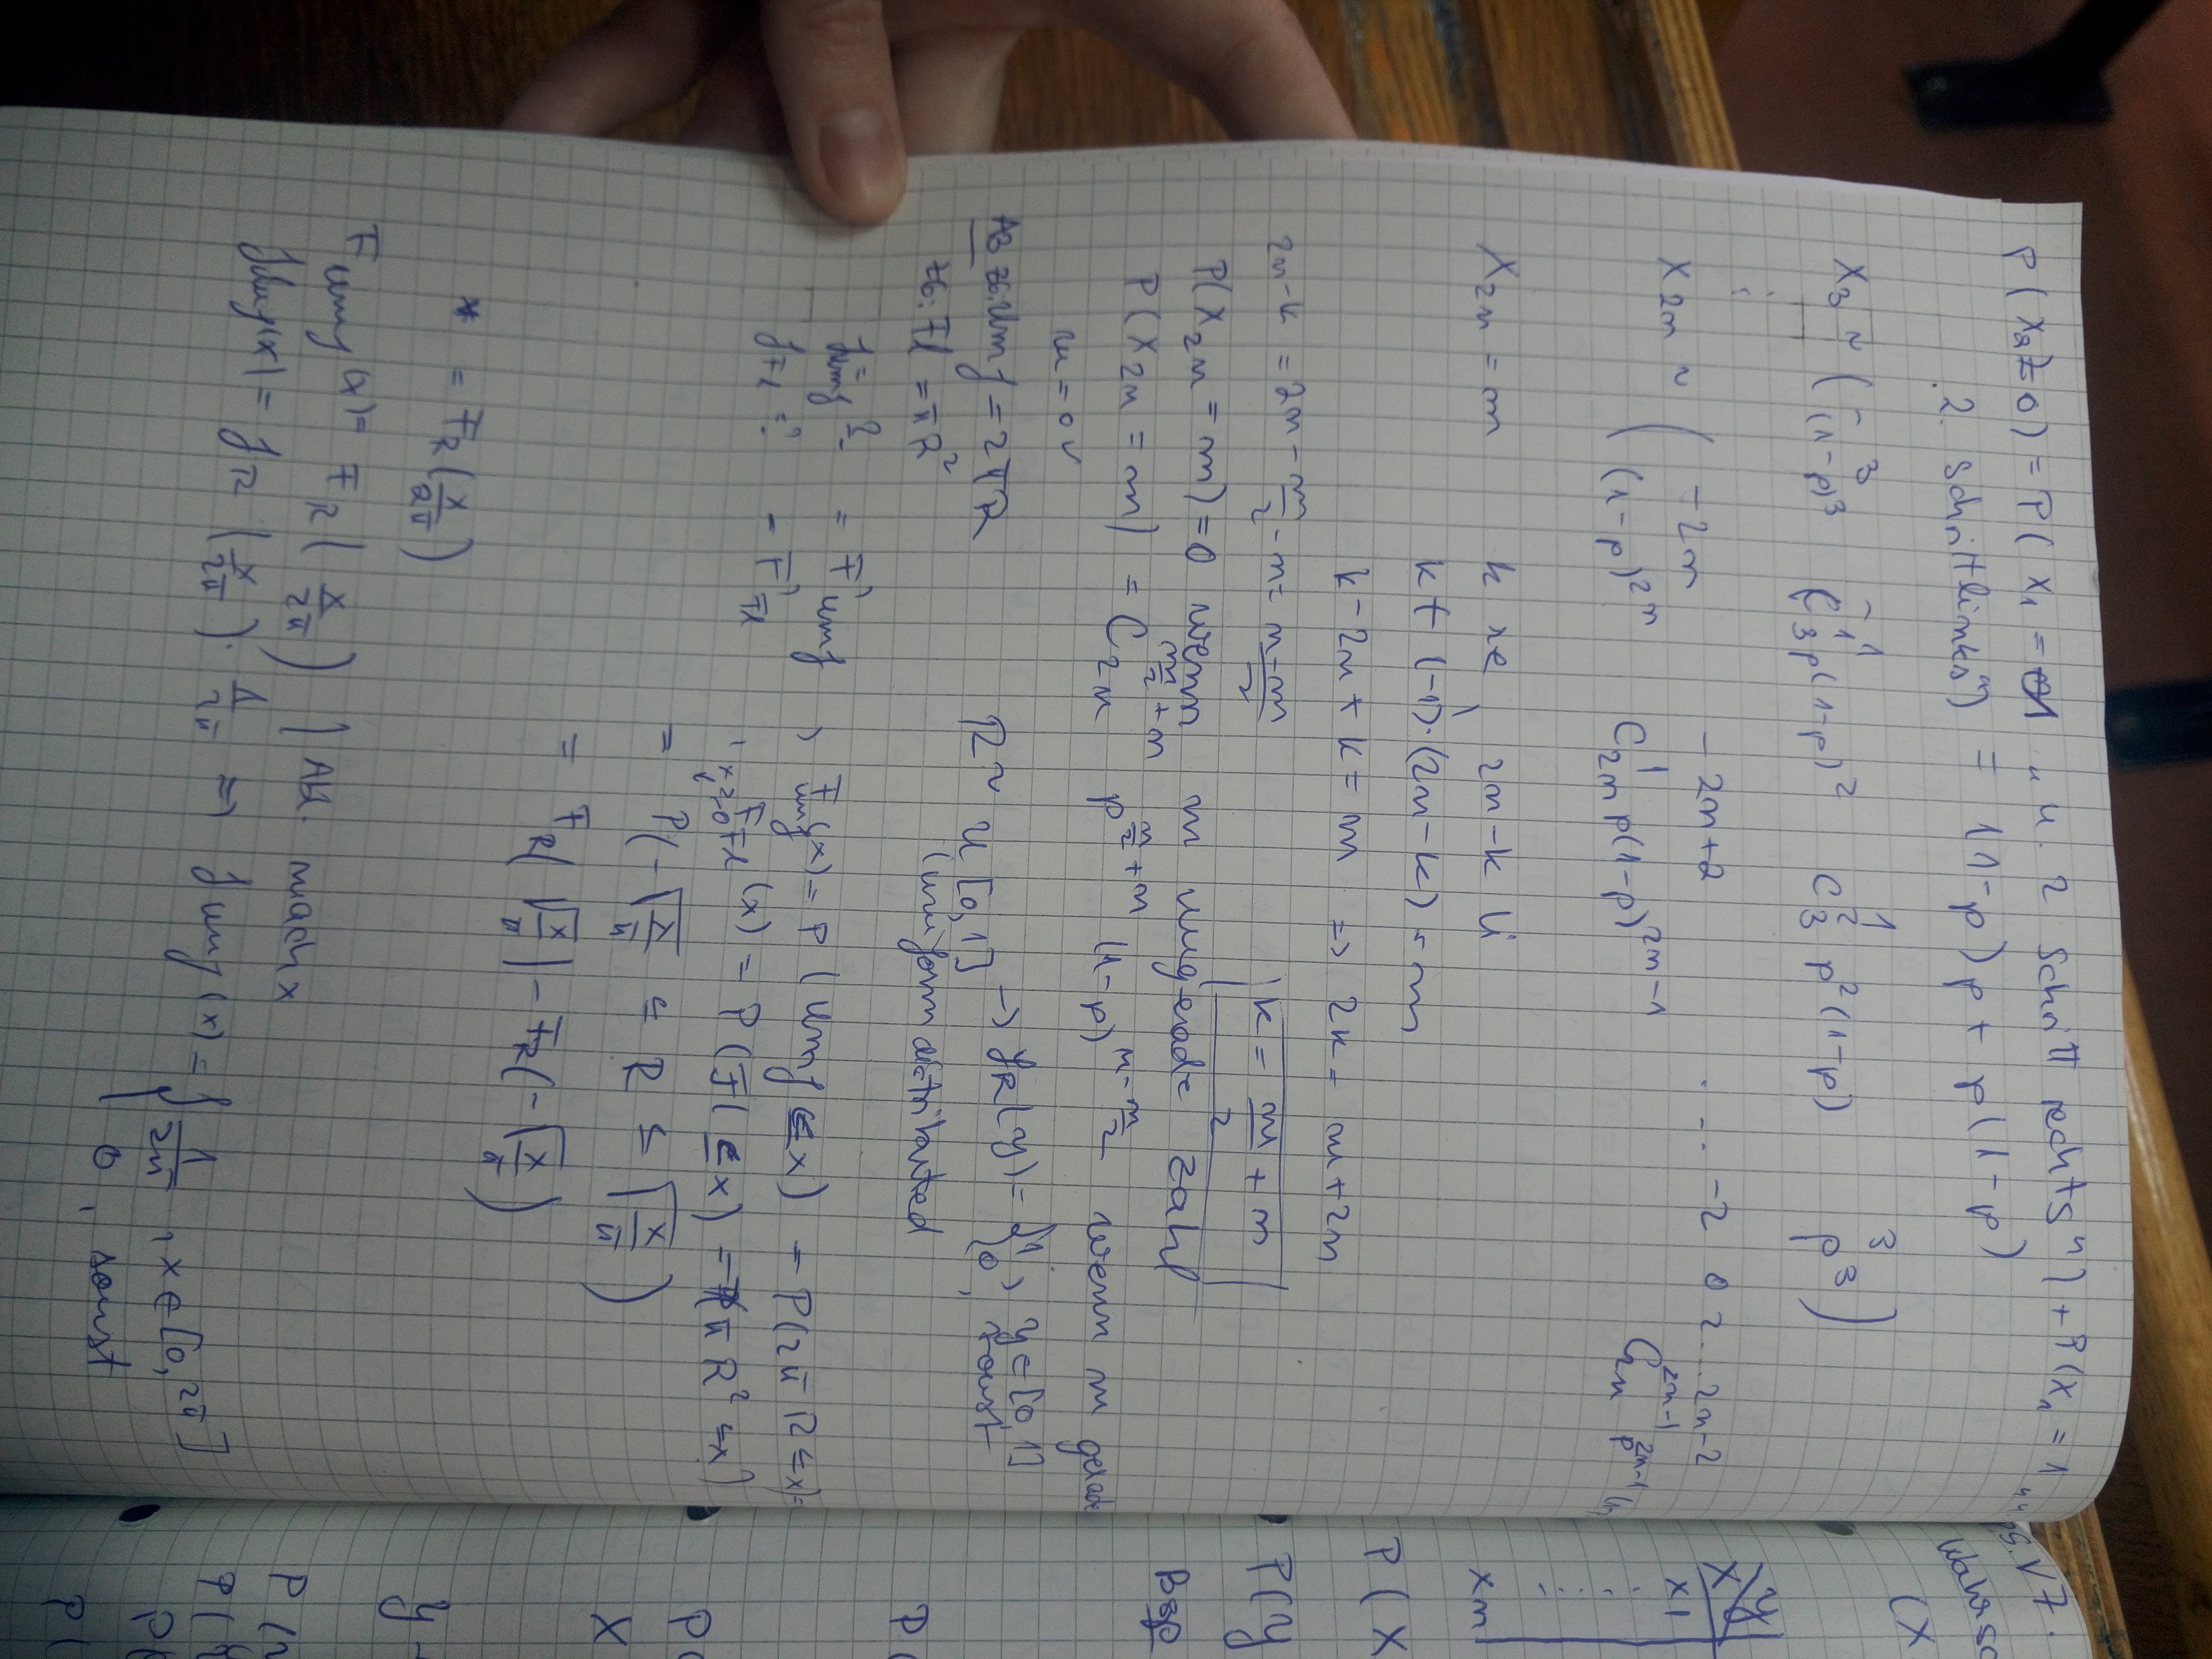 P(X₂=0) = P(X₁ = -1 „u. 2 Schritt rechts") + P(X₁ = 1 „u
2. Schritt links") = (1-p)p + p(1-p)
X₃ ~ ( -3 -1 1 3
(1-p)³ C₃¹ p(1-p)² C₃² p²(1-p) p³ )
⋮
X₂ₙ ~ ( -2n -2n+2 .... -2 0 2 ... 2n-2
(1-p)²ⁿ C₂ₙ¹ p(1-p)²ⁿ⁻¹ C₂ₙ²ⁿ⁻¹ p²ⁿ⁻¹ (1-
X₂ₙ = m k re, 2n-k li
k + (-1)·(2n-k) = m
k - 2n + k = m => 2k = m+2n
2n-k = 2n - m/2 - n = n-m/2
|k = m/2 + n|
P(X₂ₙ = m) = 0 wenn m ungerade Zahl
P(X₂ₙ = m) = C₂ₙ^(m/2+n) p^(m/2+n) (1-p)^(n-m/2) wenn m gerade
m = 0 ✓
A3 ZG: Umf = 2πR R ~ U[0,1] → f_R(y) = { 1, y∈[0,1]
0, sonst
ZG: Fl = πR² (uniform distributed
f_Umf ? = F'_Umf , F_Umf(x) = P(Umf ≤ x) = P(2πR ≤ x) =
f_Fl = ? = F'_Fl , F_Fl(x) = P(Fl ≤ x) = P(πR² ≤ x)
x≥0
= P(-√(x/π) ≤ R ≤ √(x/π))
= F_R(√(x/π)) - F_R(-√(x/π))
* = F_R(x/2π)
F_Umf(x) = F_R(x/2π) | Abl. nach x
f_Umf(x) = f_R(x/2π) · 1/2π => f_Umf(x) = { 1/2π , x∈[0,2π]
0 , sonst
PS. V7.
Wahrsc
(X
X\Y
x1
⋮
xn
P(X
P(Y
Bsp
P(
P(
X
Y
P(
P(
P(
P(